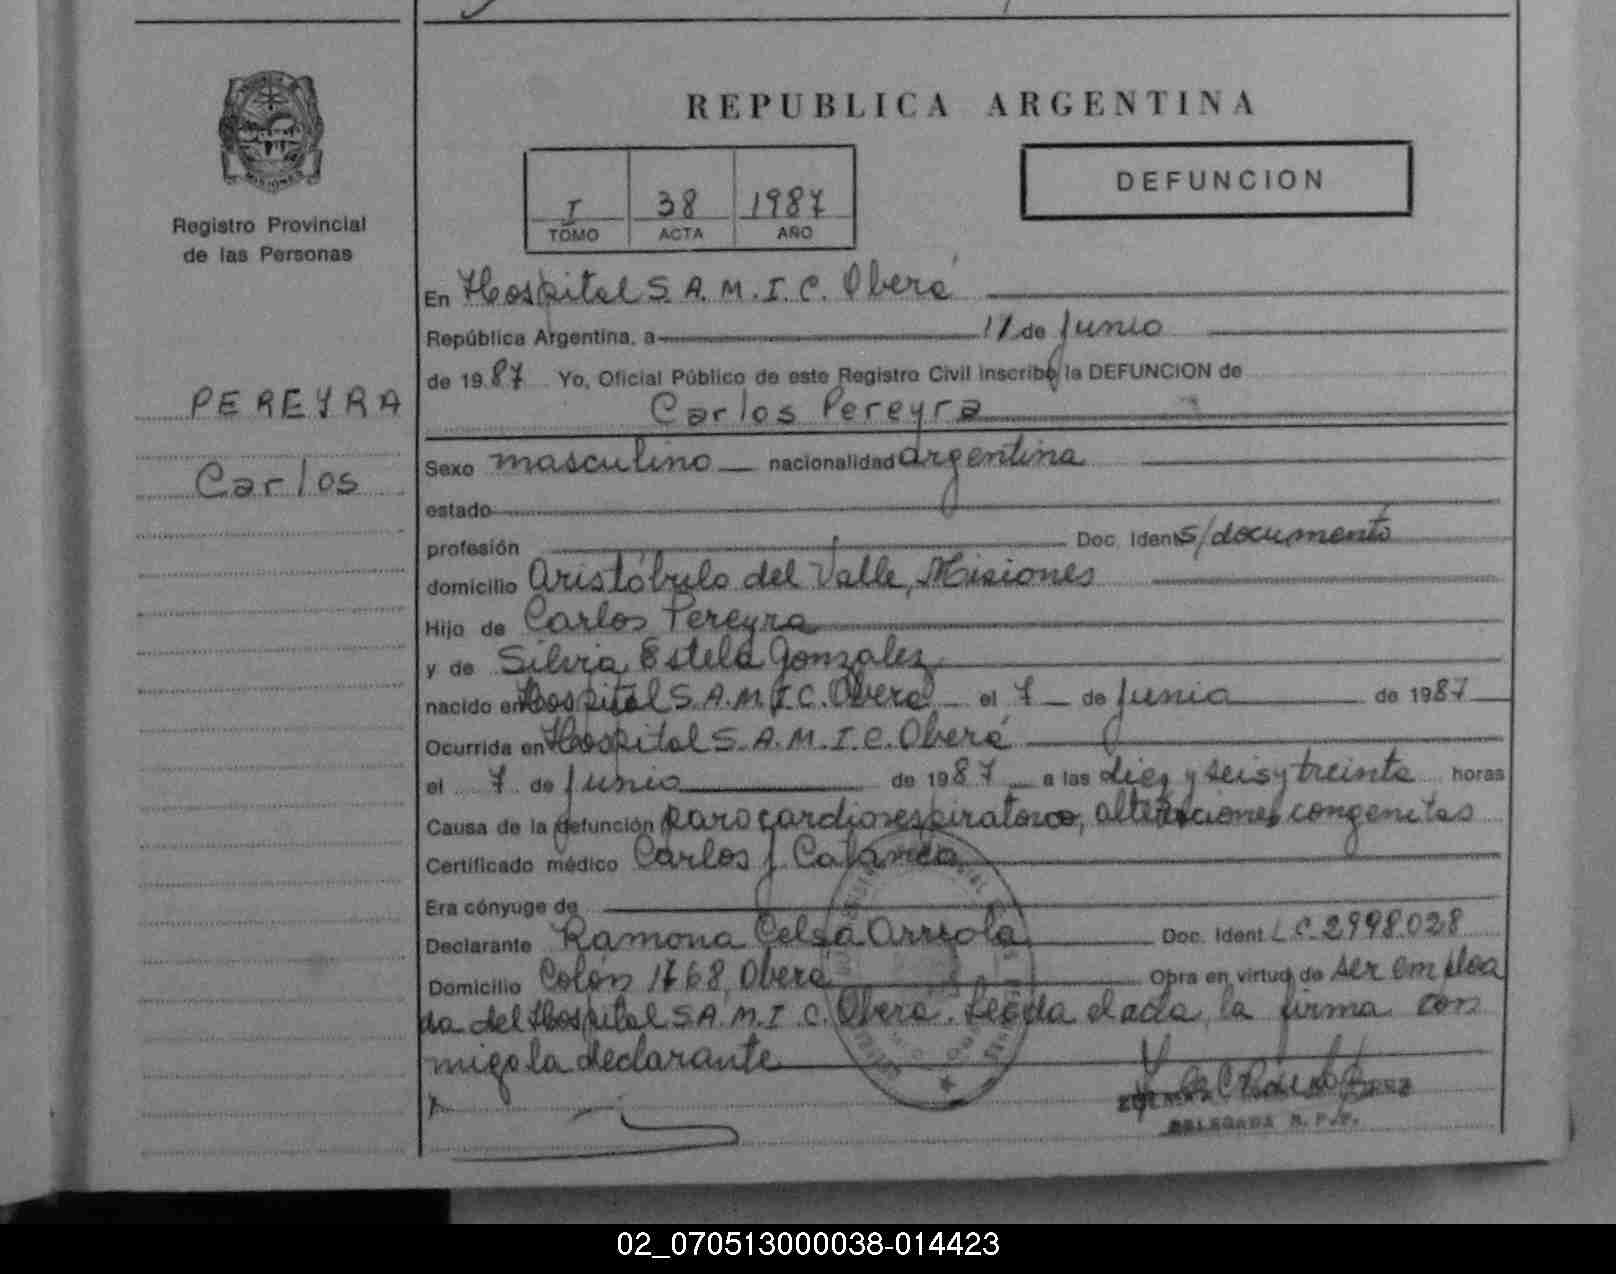 REPUBLICA ARGENTINA
DEFUNCION
I 38 1987
TOMO ACTA AÑO
MISIONES
Registro Provincial
de las Personas
PEREYRA
Carlos
En Hospital S.A.M.I.C. Oberá
República Argentina, a 11 de Junio
de 1987 Yo, Oficial Público de este Registro Civil inscribo la DEFUNCION de
Carlos Pereyra
Sexo masculino nacionalidad argentina
estado
profesión Doc. Ident. s/documento
domicilio Aristóbulo del Valle, Misiones
Hijo de Carlos Pereyra
y de Silvia Estela Gonzalez
nacido en Hospital S.A.M.I.C. Oberá el 7 de Junio de 1987
Ocurrida en Hospital S.A.M.I.C. Oberá
el 7 de Junio de 1987 a las diez y seis y treinta horas
Causa de la defunción paro cardiorespiratorio, alteraciones congenitas
Certificado médico Carlos J.
Era cónyuge de
Declarante Ramona Celsa Arreola Doc. Ident. L.C. 2998.028
Domicilio Colón 1768, Oberá Obra en virtud de ser emplea
da del Hospital S.A.M.I.C. Oberá. Leída el acta, la firma con
migo la declarante
DELEGADA R.P.P.
02_070513000038-014423